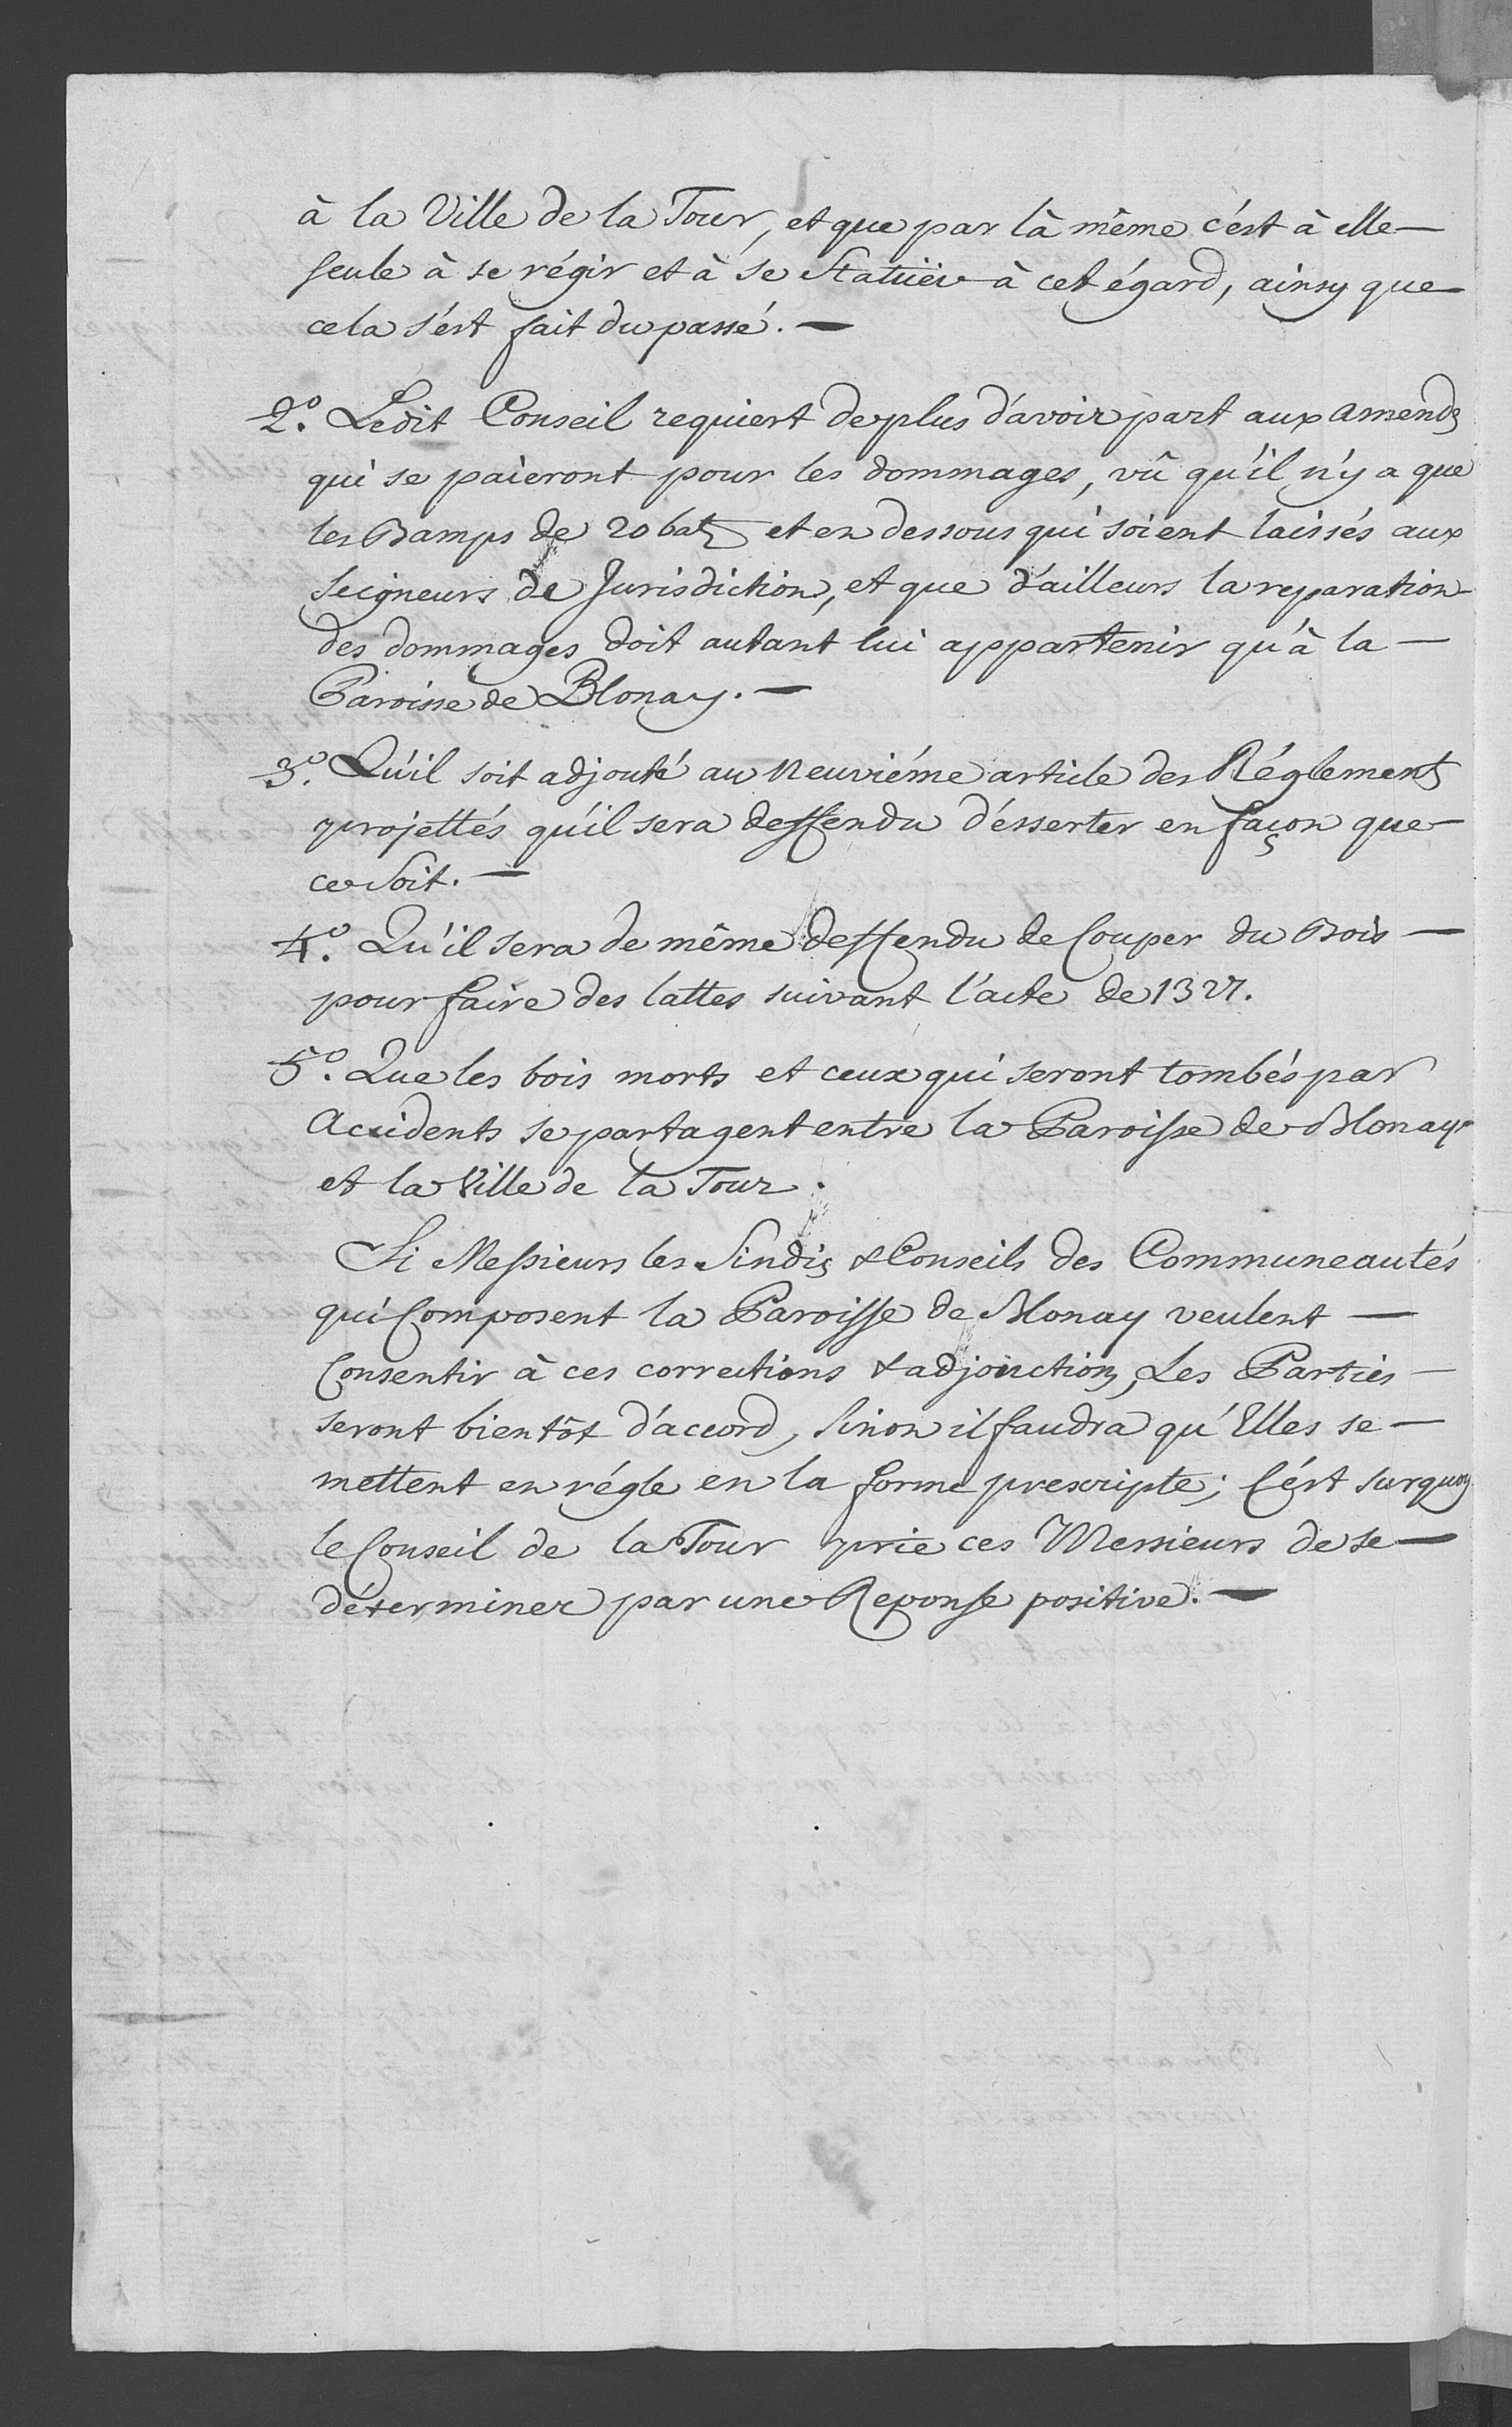 à la Ville de la Tour, et que par là même c'ést à elle —
seule à se régir et à se Statüer à cet égard, ainsy que
cela s'ést fait du passé. —
2.° Ledit Conseil requiert de plus d'avoir part aux amends
qui se paieront pour les dommages, vû qu'il n'y a que
les Bamps de 20 batz et en dessous qui soient laissés aux
Seigneurs de Jurisdiction, et que d'ailleurs la reparation
des dommages doit autant lui appartenir qu'à la —
Paroisse de Blonay. —
3.° Qu'il soit adjouté au neuviéme article des Réglements
projettés qu'il sera deffendu d'ésserter en façon que
ce soit. —
4.° Qu'il sera de même deffendu de Couper du Bois —
pour faire des lattes suivant l'acte de 1327.
5.° Que les bois morts et ceux qui seront tombés par
Accidents se partagent entre la Paroisse de Blonay
et la Ville de la Tour.
Si Messieurs les Sindis & Conseils des Communeautés
qui Composent la Paroisse de Blonay veulent —
Consentir à ces corrections & adjonctions, Les Parties —
seront bientôt d'accord, Sinon il faudra qu'Elles se —
mettent en régle en la forme prescripte; C'ést surquoy
le Conseil de la Tour prie ces Messieurs de se —
déterminer par une Reponse positive. —